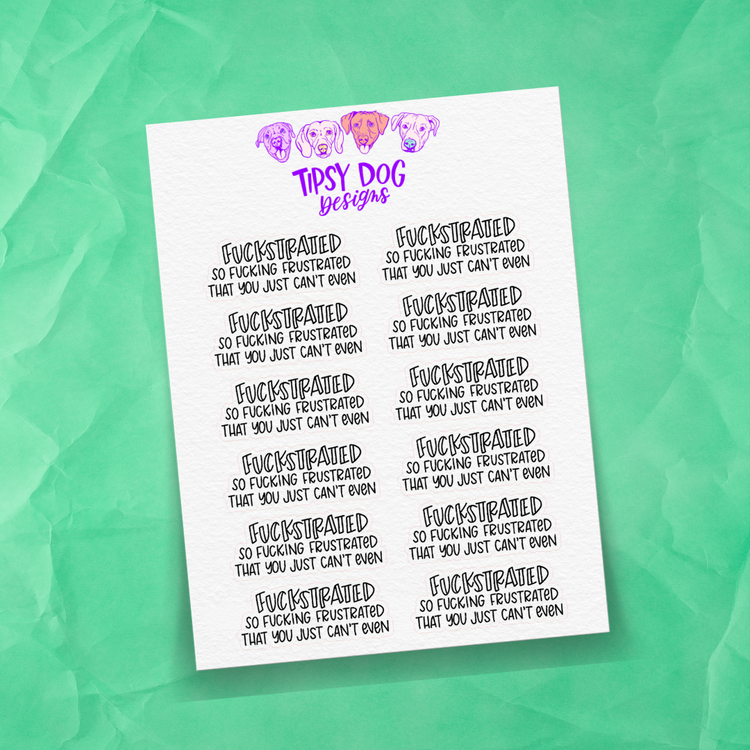 TIPSY DOG
Designs
FUCKSTRATED
SO FUCKING FRUSTRATED
THAT YOU JUST CAN'T EVEN
FUCKSTRATED
SO FUCKING FRUSTRATED
THAT YOU JUST CAN'T EVEN
FUCKSTRATED
SO FUCKING FRUSTRATED
THAT YOU JUST CAN'T EVEN
FUCKSTRATED
SO FUCKING FRUSTRATED
THAT YOU JUST CAN'T EVEN
FUCKSTRATED
SO FUCKING FRUSTRATED
THAT YOU JUST CAN'T EVEN
FUCKSTRATED
SO FUCKING FRUSTRATED
THAT YOU JUST CAN'T EVEN
FUCKSTRATED
SO FUCKING FRUSTRATED
THAT YOU JUST CAN'T EVEN
FUCKSTRATED
SO FUCKING FRUSTRATED
THAT YOU JUST CAN'T EVEN
FUCKSTRATED
SO FUCKING FRUSTRATED
THAT YOU JUST CAN'T EVEN
FUCKSTRATED
SO FUCKING FRUSTRATED
THAT YOU JUST CAN'T EVEN
FUCKSTRATED
SO FUCKING FRUSTRATED
THAT YOU JUST CAN'T EVEN
FUCKSTRATED
SO FUCKING FRUSTRATED
THAT YOU JUST CAN'T EVEN